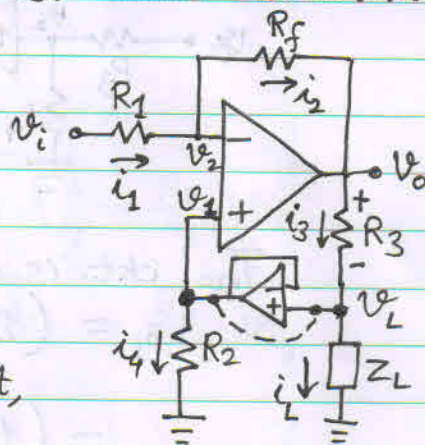 R_f
i_2
R_1
v_i
i_1
v_2
−
v_1
+
V_o
+
i_3
R_3
−
−
+
v_L
i_4
R_2
i_L
Z_L
t,